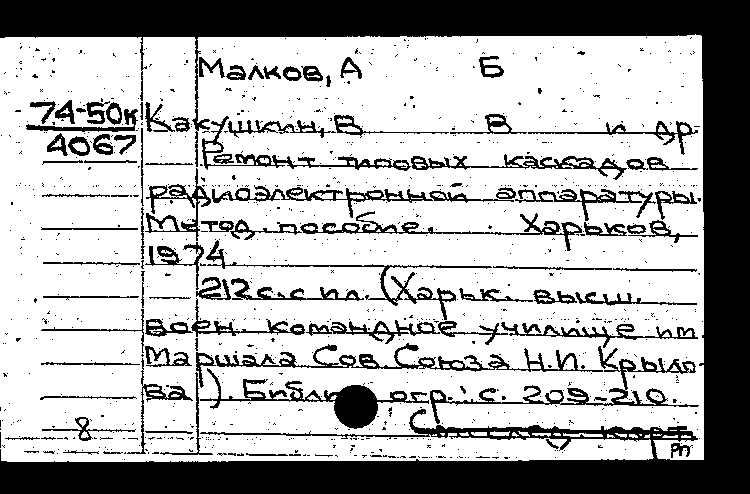 Малков, А Б
74-50к
4067
Какушкин, В В и др.
Ремонт типовых каскадов
радиоэлектронной аппаратуры.
Метод. пособие. Харьков,
1974.
212 с. с ил. (Харьк. высш.
воен. командное училище им.
Маршала Сов. Союза Н.И. Крыло-
ва). Библиогр.: с. 209-210.
См. след. карт.
8
рп